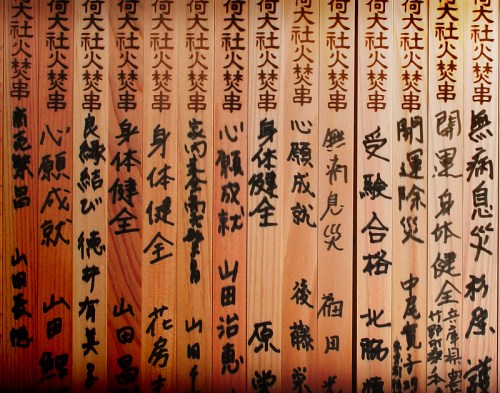 荷大社火焚串 無病息災
荷大社火焚串 開運 身体健全 兵庫県
荷大社火焚串 開運除災 中尾寛子
荷大社火焚串 受験合格 北脇
荷大社火焚串 無病息災 福田光
荷大社火焚串 心願成就 後藤栄
荷大社火焚串 身体健全 原栄
荷大社火焚串 心願成就 山田治恵
荷大社火焚串 山田
荷大社火焚串 身体健全 花房
荷大社火焚串 身体健全 山田昌
荷大社火焚串 良縁結び 徳井有美子
大社火焚串 心願成就 山田
大社火焚串 商売繁昌 山田